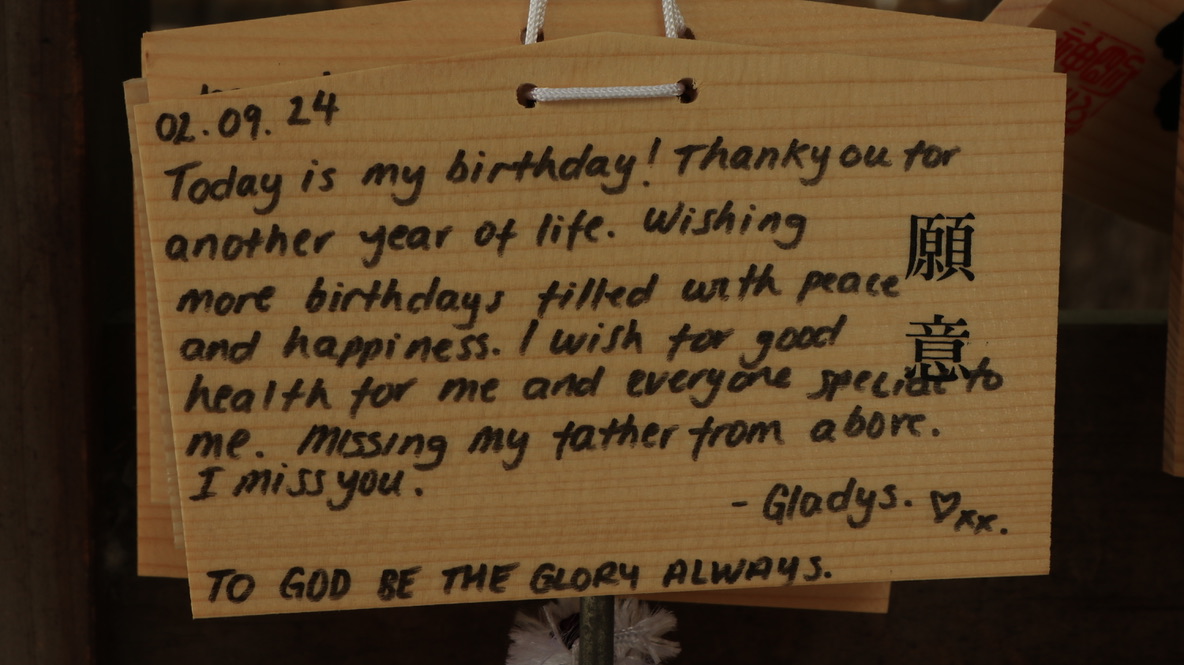 02.09.24
Today is my birthday! Thankyou for
another year of life. Wishing
more birthdays filled with peace
and happiness. I wish for good
health for me and everyone special to
me. Missing my father from above.
I miss you.
- Gladys. ♡xx.
TO GOD BE THE GLORY ALWAYS.
願意